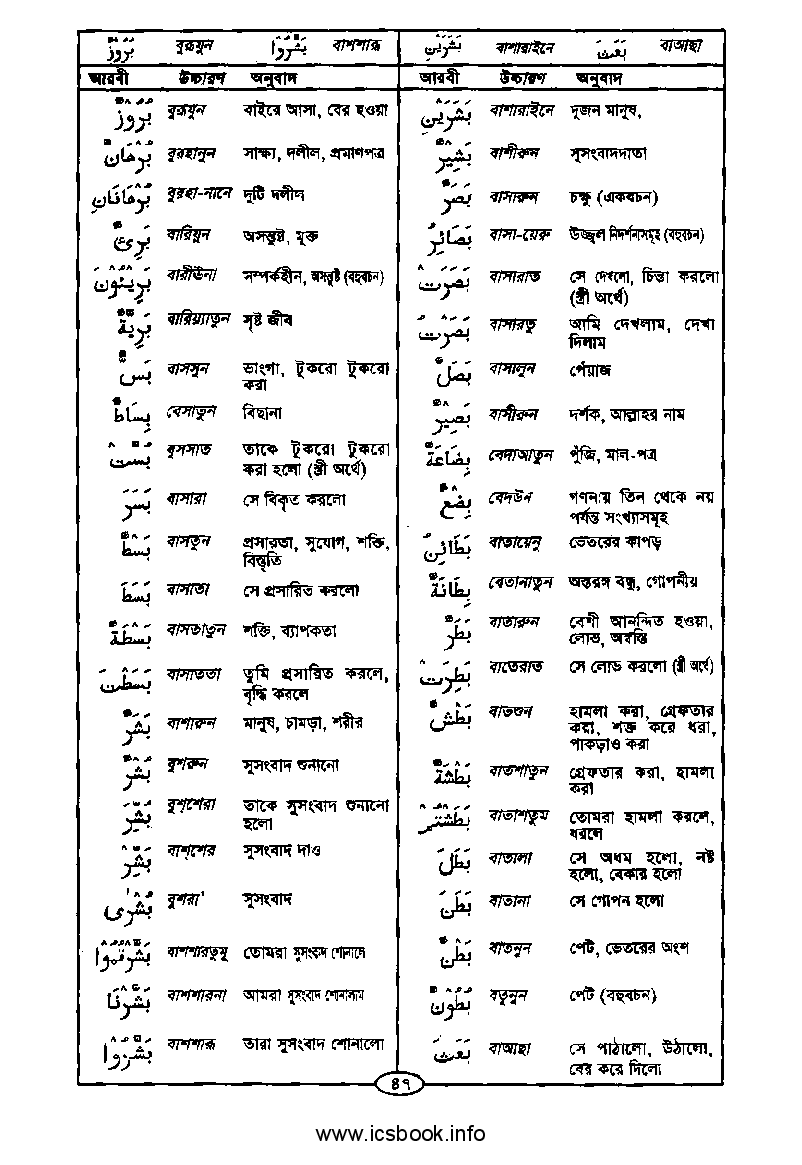 بُرُوْزٌ বুরূযুন بَشَّرُوْا বাশশারূ بَشَرَيْنِ বাশারাইনে بَعَثَ বাআছা
আরবী উচ্চারণ অনুবাদ আরবী উচ্চারণ অনুবাদ
بُرُوْزٌ বুরূযুন বাইরে আসা, বের হওয়া
بُرْهَانٌ বুরহানুন সাক্ষ্য, দলীল, প্রমাণপত্র
بُرْهَانَانِ বুরহা-নানে দুটি দলীল
بَرِىْءٌ বারিয়ুন অসন্তুষ্ট, মুক্ত
بَرِيْئُوْنَ বারীউনা সম্পর্কহীন, অসন্তুষ্ট (বহুবচন)
بَرِيَّةٌ বারিয়্যাতুন সৃষ্ট জীব
بَسٌّ বাসসুন ভাংগা, টুকরো টুকরো
করা
بِسَاطٌ বেসাতুন বিছানা
بُسَّتْ বুসসাত তাকে টুকরো টুকরো
করা হলো (স্ত্রী অর্থে)
بَسَرَ বাসারা সে বিকৃত করলো
بَسْطٌ বাসতুন প্রসারতা, সুযোগ, শক্তি,
বিস্তৃতি
بَسَطَ বাসাতা সে প্রসারিত করলো
بَسْطَةٌ বাসতাতুন শক্তি, ব্যাপকতা
بَسَطْتَ বাসাততা তুমি প্রসারিত করলে,
বৃদ্ধি করলে
بَشَرٌ বাশারুন মানুষ, চামড়া, শরীর
بُشْرٌ বুশরুন সুসংবাদ শুনানো
بُشِّرَ বুশ্শেরা তাকে সুসংবাদ শুনানো
হলো
بَشِّرْ বাশ্শের সুসংবাদ দাও
بُشْرٰى বুশরা' সুসংবাদ
بَشَّرْتُمُوْا বাশশারতুমূ তোমরা সুসংবাদ শোনালে
بَشَّرْنَا বাশশারনা আমরা সুসংবাদ শোনালাম
بَشَّرُوْا বাশশারূ তারা সুসংবাদ শোনালো
بَشَرَيْنِ বাশারাইনে দুজন মানুষ,
بَشِيْرٌ বাশীরুন সুসংবাদদাতা
بَصَرٌ বাসারুন চক্ষু (একবচন)
بَصَائِرُ বাসা-য়েরু উজ্জ্বল নিদর্শনাসমূহ (বহুবচন)
بَصُرَتْ বাসারাত সে দেখলো, চিন্তা করলো
(স্ত্রী অর্থে)
بَصُرْتُ বাসারতু আমি দেখলাম, দেখা
দিলাম
بَصَلٌ বাসালুন পেঁয়াজ
بَصِيْرٌ বাসীরুন দর্শক, আল্লাহর নাম
بِضَاعَةٌ বেদাআতুন পুঁজি, মাল-পত্র
بِضْعٌ বেদউন গণনায় তিন থেকে নয়
পর্যন্ত সংখ্যাসমূহ
بَطَائِنُ বাতায়েনু ভেতরের কাপড়
بِطَانَةٌ বেতানাতুন অন্তরঙ্গ বন্ধু, গোপনীয়
بَطَرٌ বাতারুন বেশী আনন্দিত হওয়া,
লোভ, অবস্তি
بَطِرَتْ বাতেরাত সে লোভ করলো (স্ত্রী অর্থে)
بَطْشٌ বাতশুন হামলা করা, গ্রেফতার
করা, শক্ত করে ধরা,
পাকড়াও করা
بَطْشَةٌ বাতশাতুন গ্রেফতার করা, হামলা
করা
بَطَشْتُمْ বাতাশতুম তোমরা হামলা করলে,
ধরলে
بَطَلَ বাতালা সে অধম হলো, নষ্ট
হলো, বেকার হলো
بَطَنَ বাতানা সে গোপন হলো
بَطْنٌ বাতনুন পেট, ভেতরের অংশ
بُطُوْنٌ বতুনুন পেট (বহুবচন)
بَعَثَ বাআছা সে পাঠালো, উঠালো,
বের করে দিলো
৪৭
www.icsbook.info